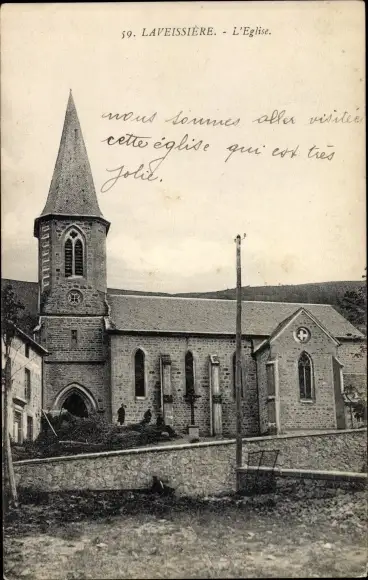 59. LAVEISSIÈRE. - L'Eglise.
nous sommes aller visiter
cette église qui est très
jolie.